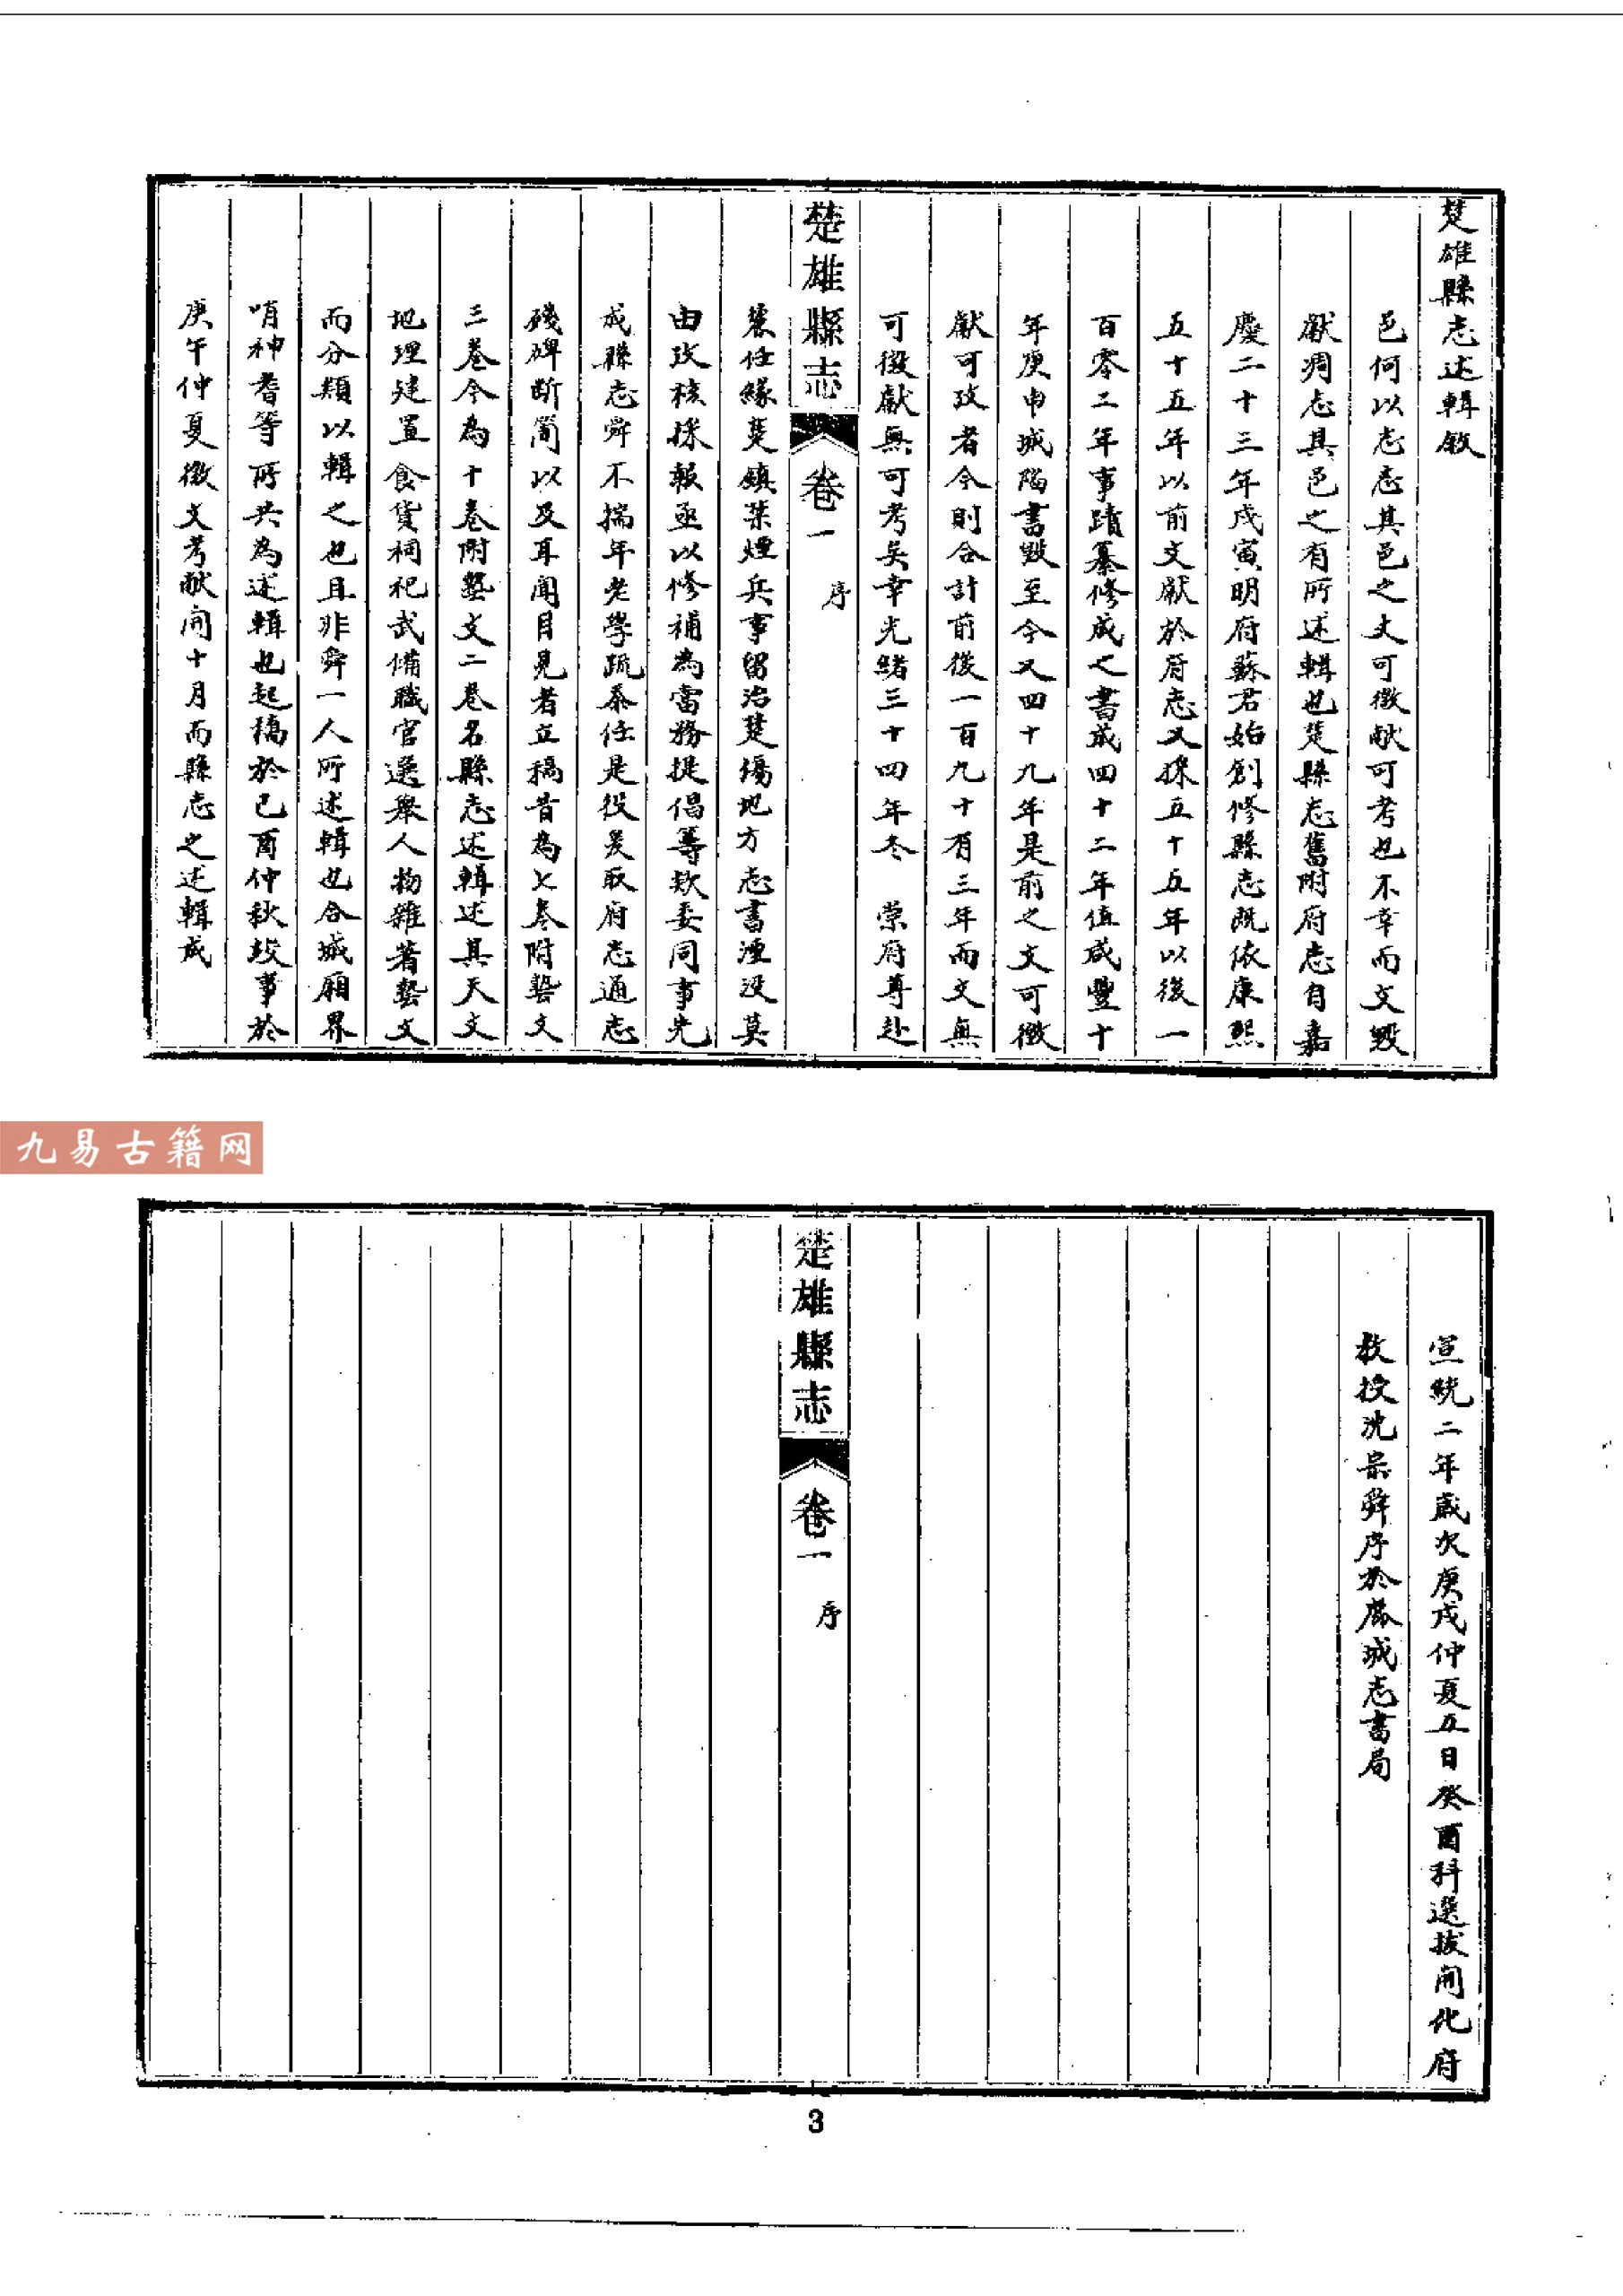 楚雄縣志述輯敘
邑何以志志其邑之文可徵献可考也不幸而文毀
獻凋志其邑之有所述輯也楚縣志舊附府志自嘉
慶二十三年戊寅明府蘇君始創修縣志既依康熙
五十五年以前文獻於府志又採五十五年以後一
百零二年事蹟纂修成之書成四十二年值咸豐十
年庚申城陷書毀至今又四十九年是前之文可徵
獻可攷者今則合計前後一百九十有三年而文無
可徵獻無可考矣幸光緒三十四年冬 崇府尊赴
楚雄縣志 卷一 序
任緣楚鎮禁煙兵事留治楚傷地方志書湮没莫
由攷核採報亟以修補為當務提倡籌欵委同事先
成縣志舜不揣年老學疏忝任是役爰取府志通志
殘碑断简以及耳聞目見者立稿昔為七卷附藝文
三卷今為十卷附藝文二卷名縣志述輯述其天文
地理建置食貨祠祀武備職官選舉人物雜著藝文
而分類以輯之也且非舜一人所述輯也合城廂界
哨神耆等所共為述輯也起稿於己酉仲秋竣事於
庚午仲夏徵文考献閲十月而縣志之述輯成
九易古籍网
宣統二年歲次庚戌仲夏五日癸酉科選拔開化府
教授沈宗舜序於鹿城志書局
楚雄縣志 卷一 序
3